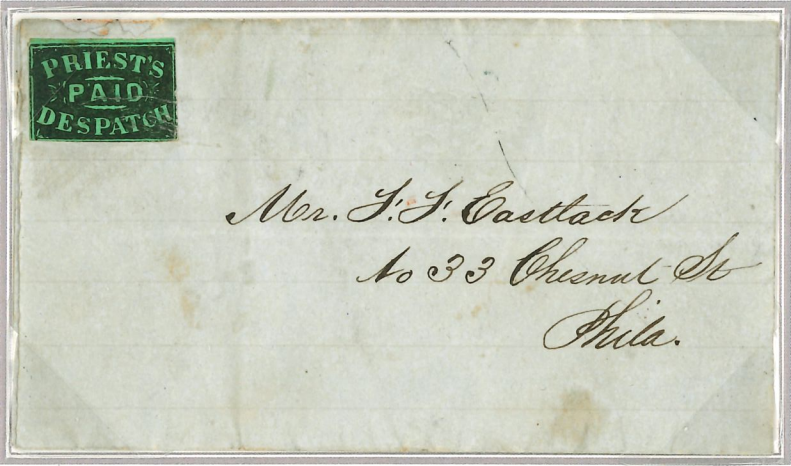 PRIEST'S
PAID
DESPATCH
Mr. F. F. Eastlack
No 33 Chesnut St
Phila.